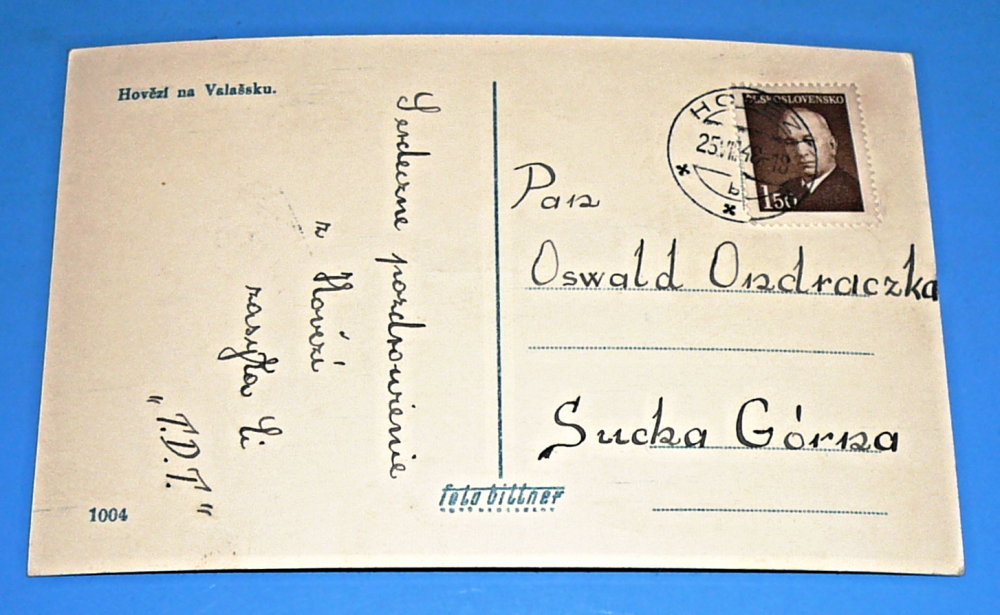 Hovězí na Valašsku.
Serdeczne pozdrowienie
z Hovězí
zasyła Ci
"T.D.T."
1004
foto bittner
ČESKOSLOVENSKO
1.50
Pan
Oswald Ondraczka
Sucha Górna